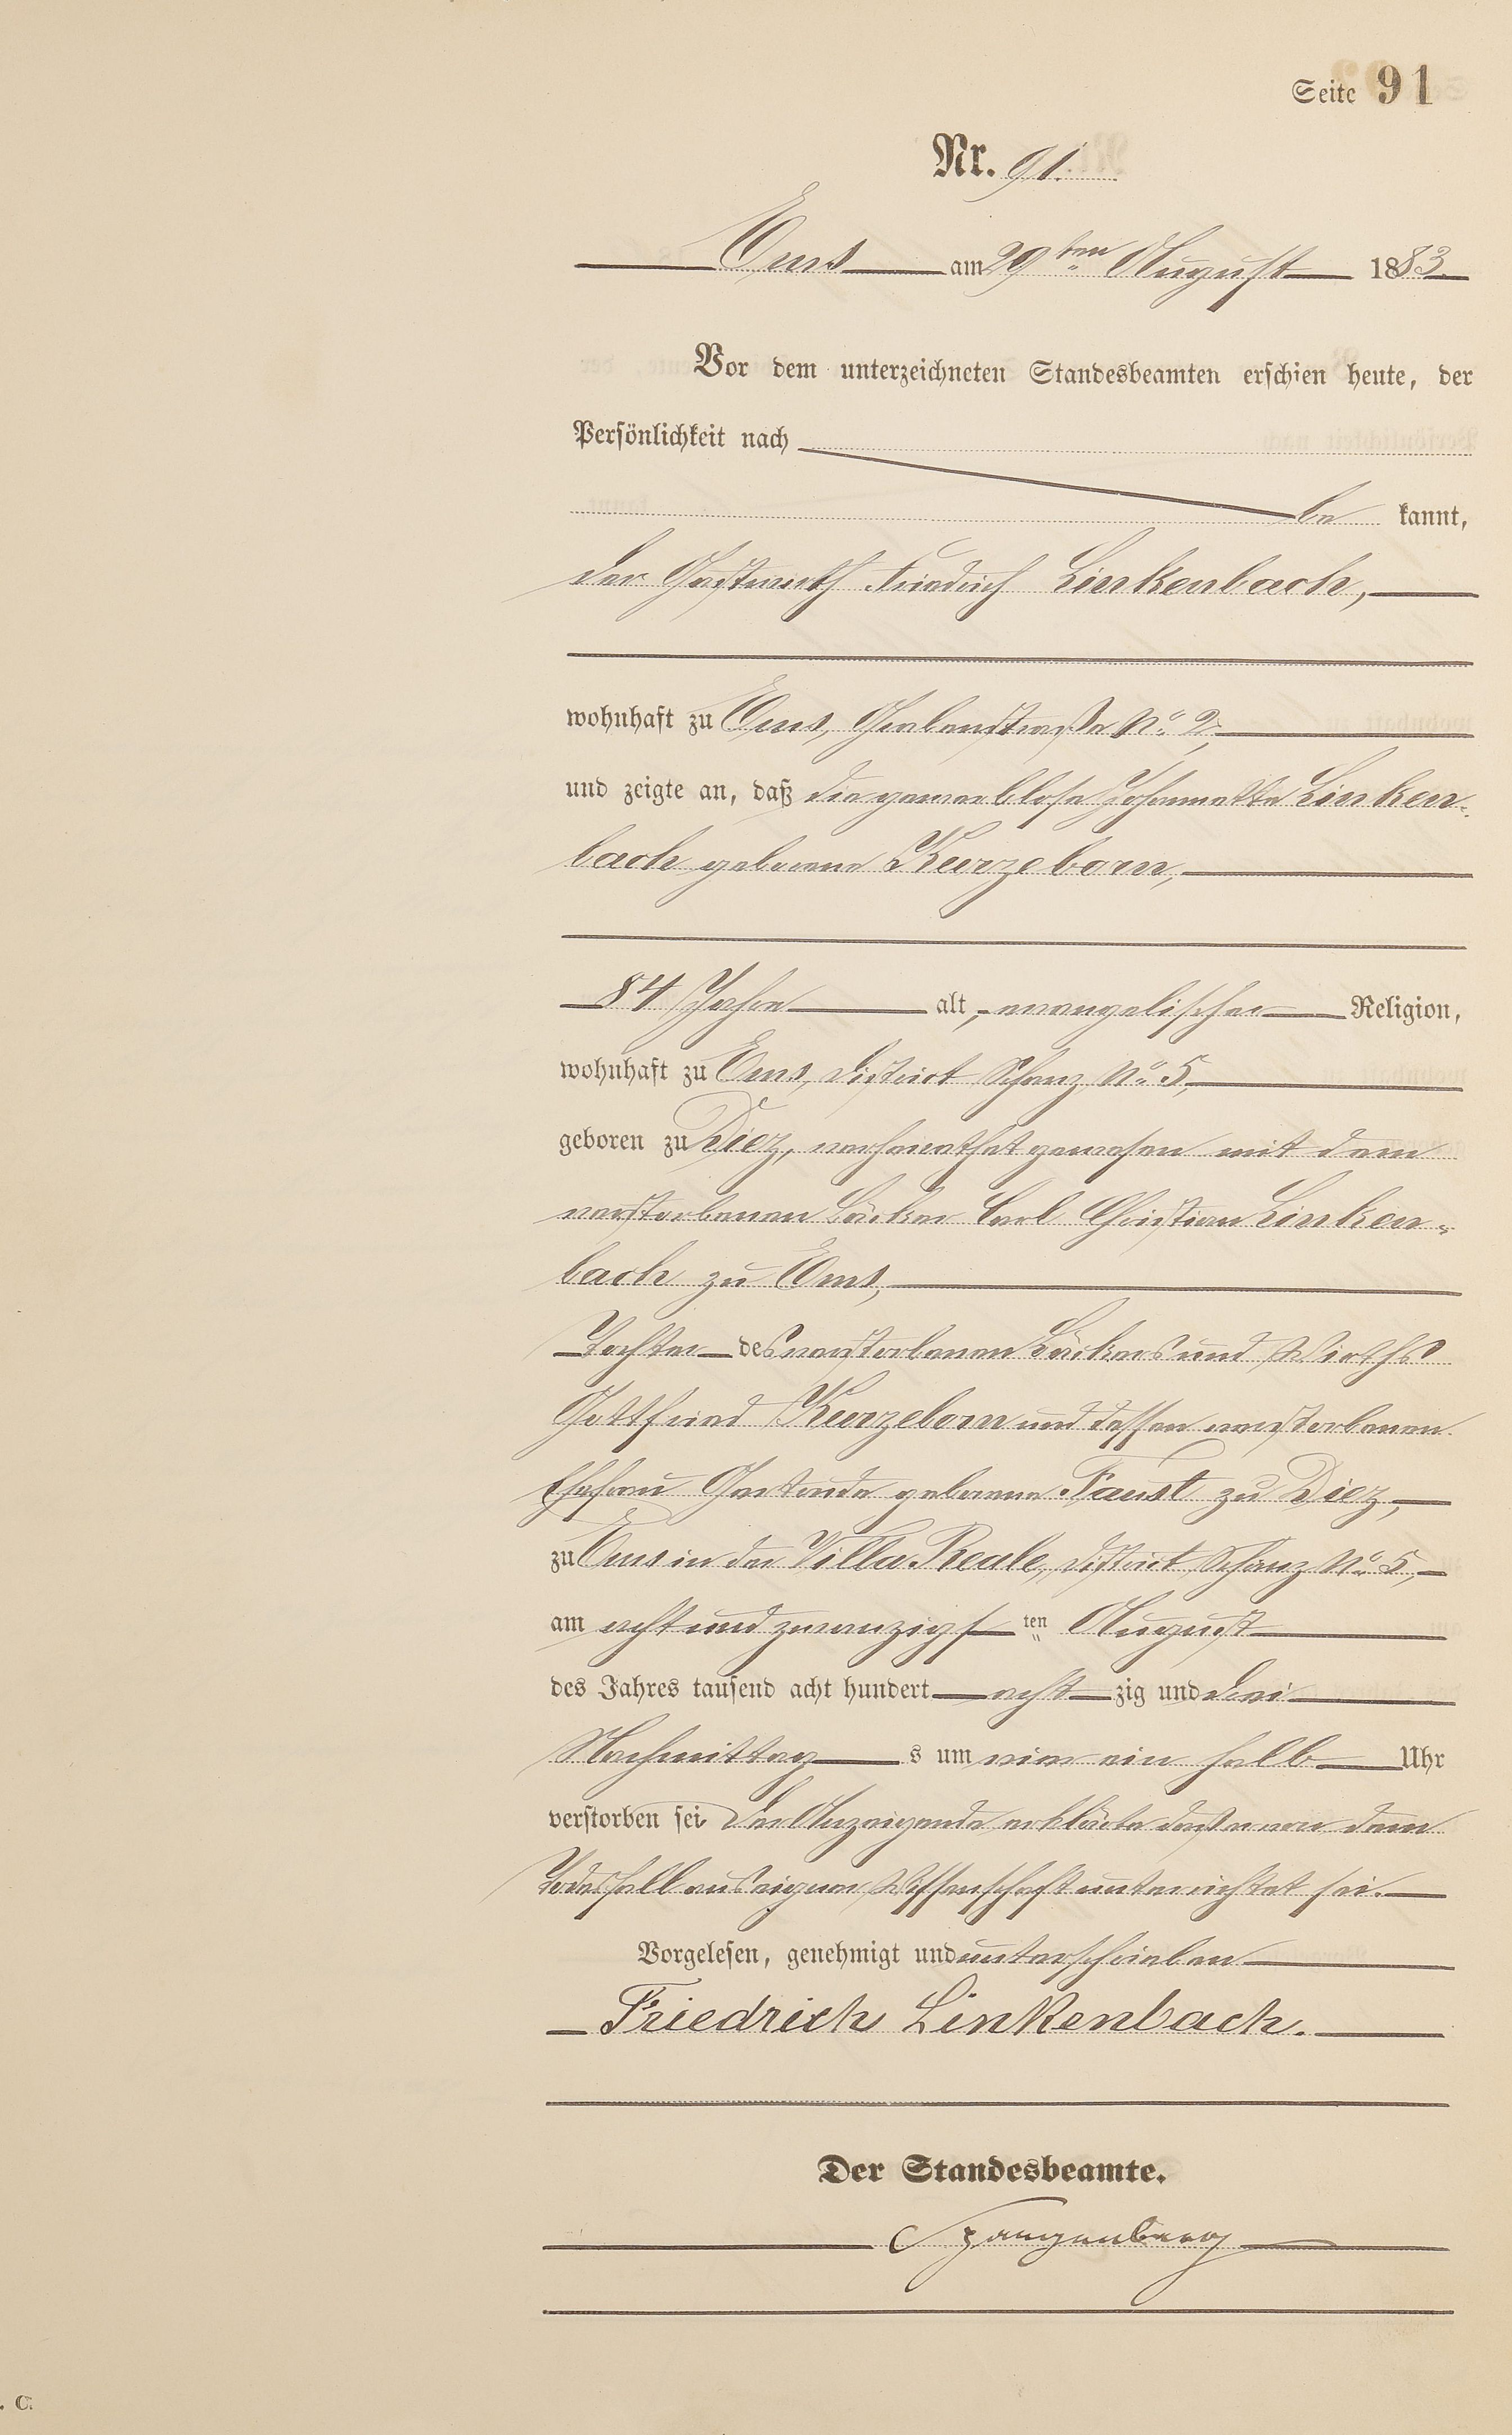 Seite 91
Nr. 91.
Ems am 29ten August 1883.
Vor dem unterzeichneten Standesbeamten erschien heute, der
Persönlichkeit nach
be kannt,
der Gastwirth Friedrich Linkenbach,
wohnhaft zu Ems, Grabenstraße No. 2,
und zeigte an, daß die gewerblose Johannette Linken-
bach geborene Kurzeborn,
84 Jahre alt, evangelischer Religion,
wohnhaft zu Ems, District Schanz No. 5,
geboren zu Diez, verheirathet gewesen mit dem
verstorbenen Bäcker Carl Christian Linken-
bach zu Ems,
Tochter des verstorbenen Bäckers und Wirths
Gottfried Kurzeborn und dessen verstorbenen
Ehefrau Gertrude geborene Faust zu Diez,
zu Ems in der Villa Reale, District Schanz No. 5,
am acht und zwanzigsten August
des Jahres tausend acht hundert acht zig und drei
Nachmittags um vier ein halb Uhr
verstorben sei. Der Anzeigende erklärte daß er von dem
Todesfall aus eigener Wissenschaft unterrichtet sei.
Vorgelesen, genehmigt und unterschrieben
Friedrich Linkenbach.
Der Standesbeamte.
Spangenberg
. C.